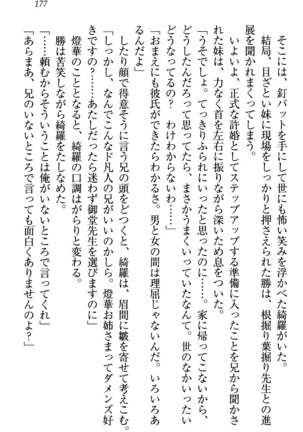 177
そこには、釘バットを手にして世にも怖い笑みを浮かべた綺羅がいた。
結局、目ざとい妹に現場をしっかりと押さえられた勝は、根掘り葉掘り先生との進
展を聞かれまくってしまう。
いよいよ、正式な許婚としてステップアップする準備に入ったことを兄から聞かさ
れた妹は、力なく首を左右に振りながら深いため息をついた。
「うそでしょ。てっきりふられにいったと思ったのに……。家に帰ってこないからど
うしたんだろって思ってたら、まさかうまくいっていたなんて。世のなかいったい
どうなってるの？　わけわからないわ……」
「おまえにも彼氏ができたらわかるさ。男と女の間は理屈じゃないんだ。いろいろあ
るんだよ」
したり顔で得意そうに言う兄の頭をどつくと、綺羅は、眉間に皺を寄せて考えこむ。
「しっかし、なんでこんなド凡人の兄がいいのかしら。燈華お姉さまってダメンズ好
きですの？　あたしだったら迷わず御堂先生を選びますのに」
燈華のこととなると、綺羅の口調はがらりと変わる。
勝は苦笑しながら綺羅をたしなめた。
「……頼むからそういうことは俺がいないところで言ってくれ」
「あらまあ、兄のいないところで言っても面白くありませんのよ？」